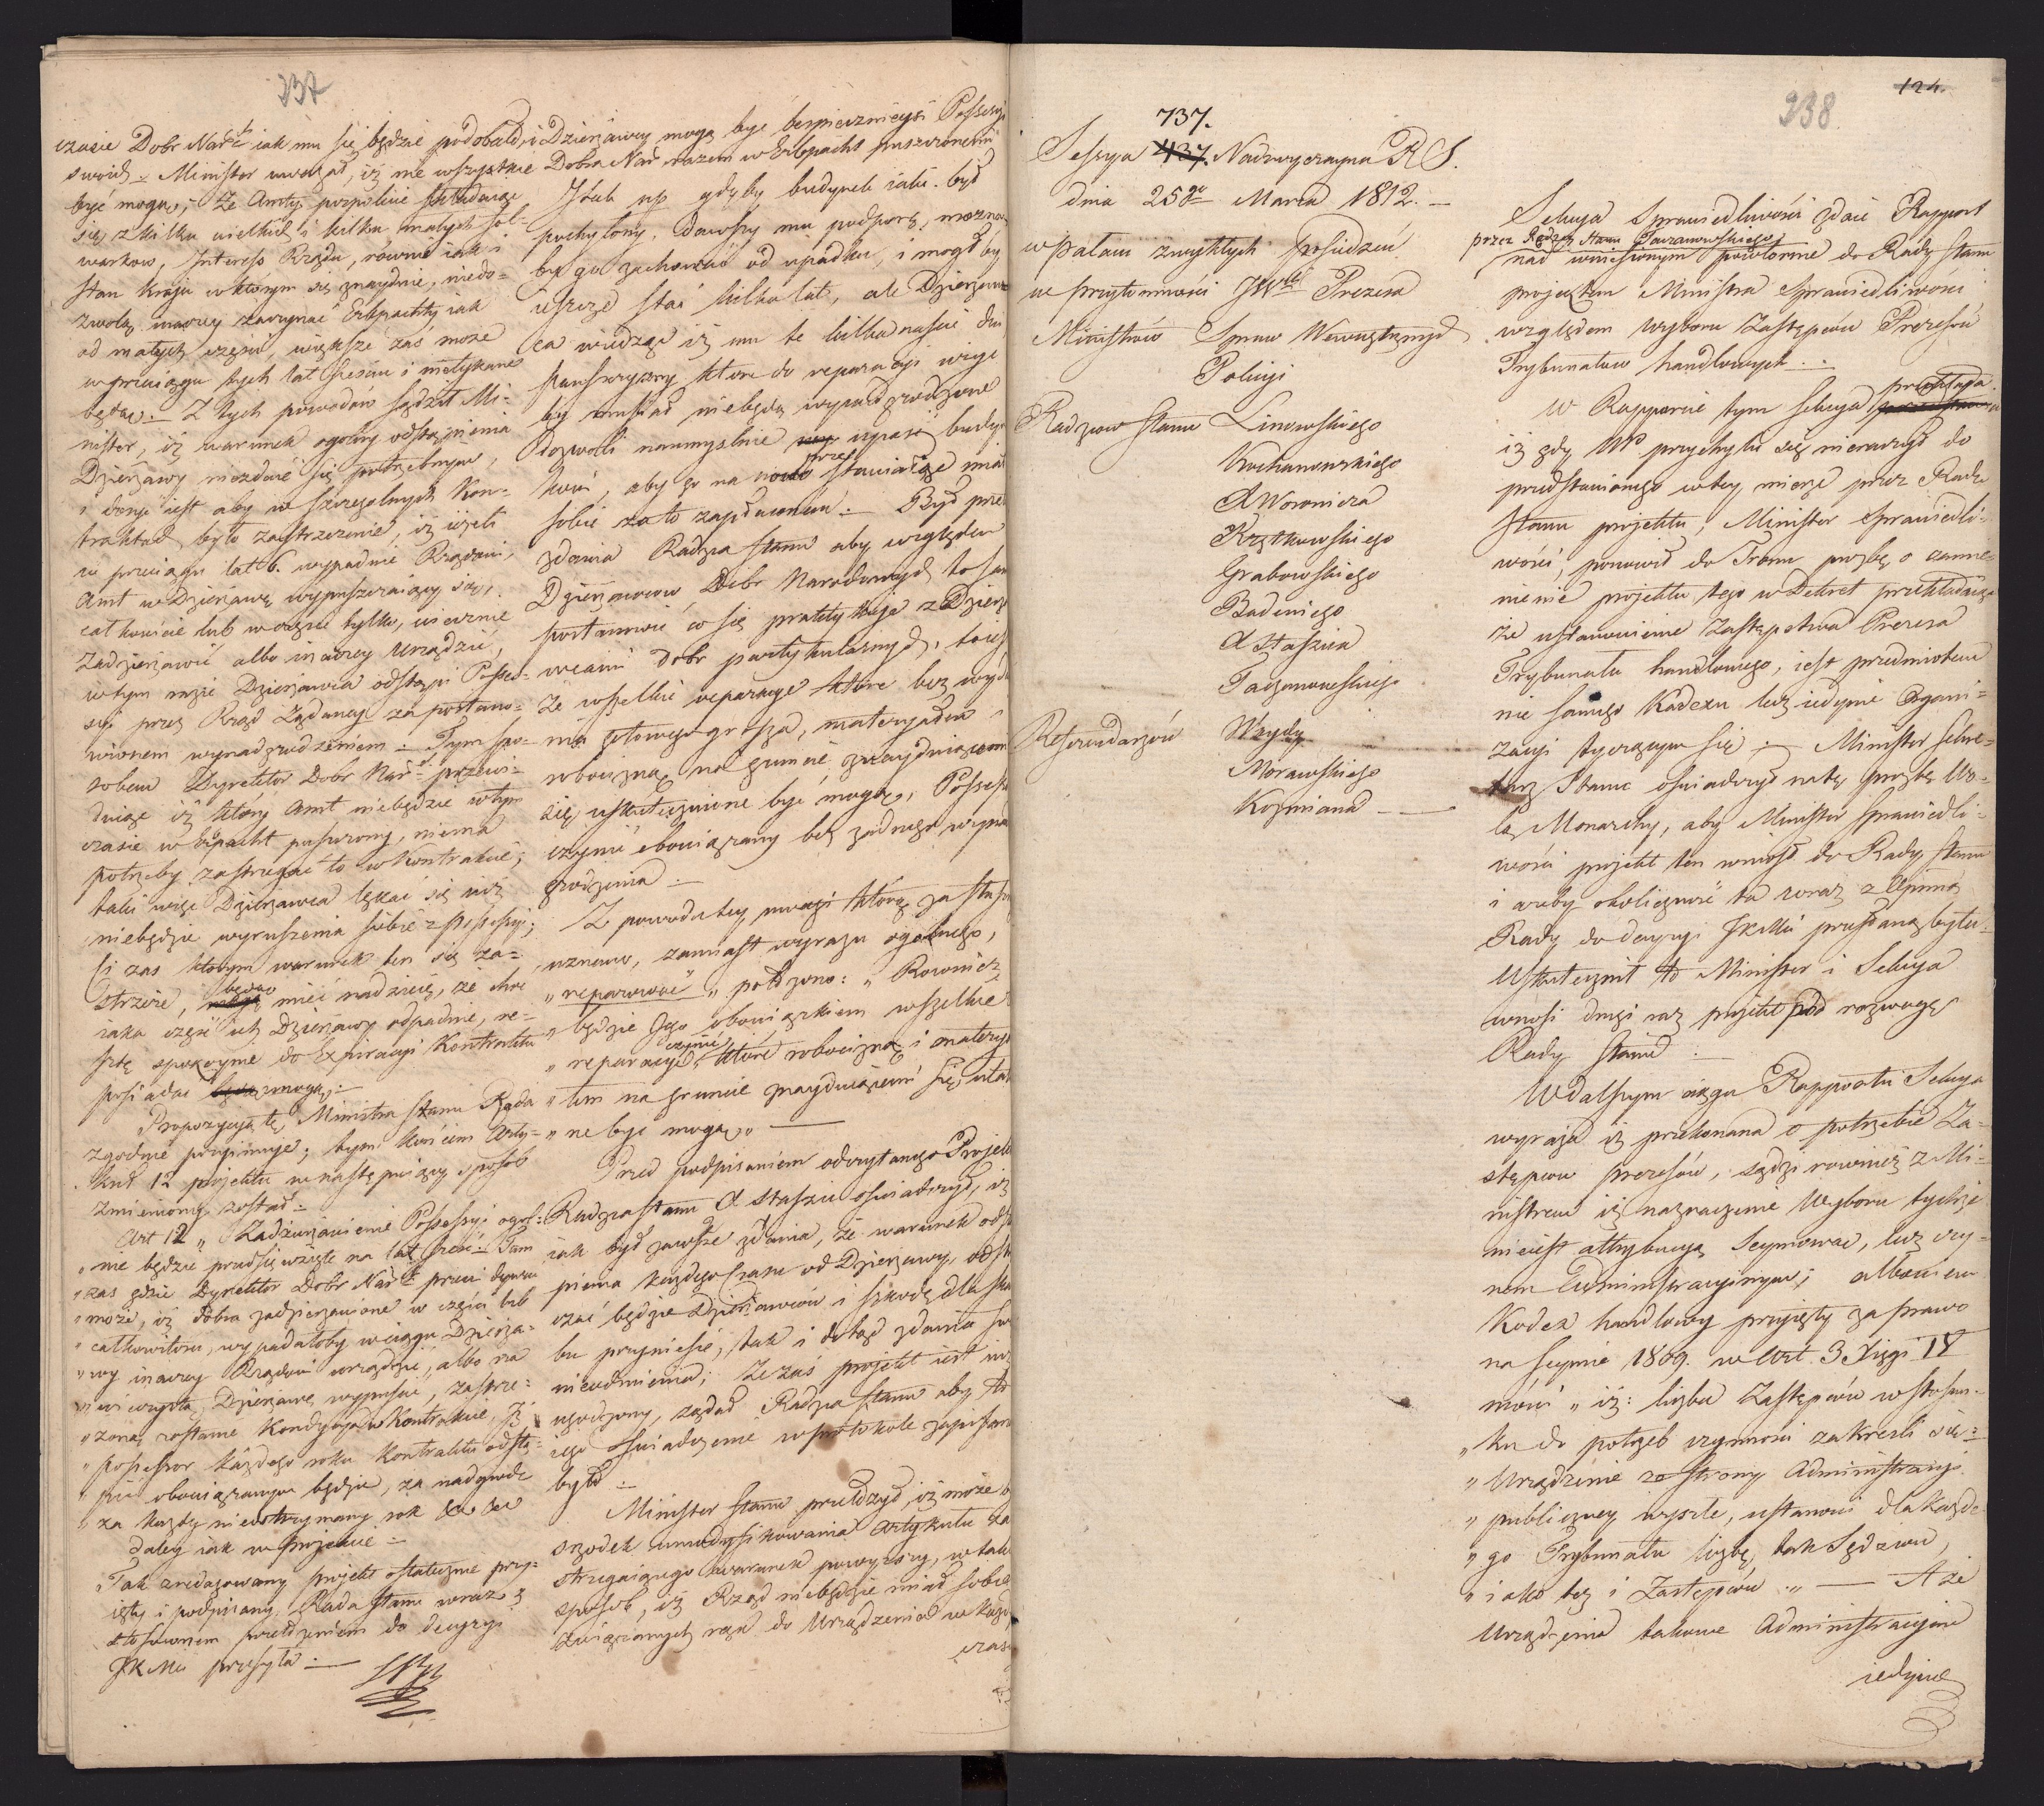 237
czasie Dobr Nar. iak mu się będzie podobało, i Dzierżawcy mogą być bespiecznieysi Possessyi
swoich. Minister uważał, iż nie wszystkie Dobra Nar. razem w Erbpacht puszczonemi
być mogą; że Amty pospolicie składaiące
się z kilku wielkich i kilku małych fol-
warkow, Interess Rządu, równie iak i
stan kraju w którym się znayduie, niedo-
zwolą inaczey zaczynać Erbpachty iak
od małych części, większe zaś może
w przeciągu tych lat sześciu i nietykane
będą. Z tych powodów sądził Mi-
nister, iż warunek ogólny odstąpienia
Dzierżawy niezdaie się potrzebnym,
i dosyć iest aby w szczegolnych Kon-
traktach było zastrzeżenie, iż ieżeli
w przeciągu lat 6. wypadnie Rządowi,
Amt w Dzierżawę wypuszczaiący się,
całkowicie lub w części tylko, wiecznie
Zadzierżawić albo inaczey Urządzić,
w tym razie Dzierżawca odstąpi Posses-
syi przez Rząd Żądaney za postano-
wionem wynadgrodzeniem. Tym spo-
sobem Dyrektor Dobr Nar. przewi-
duiąc iż który Amt niebędzie w tym
czasie w Erbpacht puszczony, niema
potrzeby zastrzegać to w Kontrakcie;
taki więc Dzierżawca lękać się iuż
niebędzie wyruszenia siebie z Possessyi;
Ci zaś którym warunek ten się za-
strzeże, będą mieć nadzieię, że choć
iaka część ich Dzierżawy odpadnie, re-
sztę spokoynie do Expiracyi Kontraktu
posiadać mogą.
Propozycyą tę Ministra Stanu Rada
zgodnie przyimuie; tym końcem Arty-
kuł 12 projektu w następuiący sposób
zmieniony został.
Art 12 „ Zadzierżawienie Possessyi ogol-
„ nie będzie przedsięwzięte na lat sześć. Tam
„ zaś gdzie Dyrektor Dobr Nar.
„ może, iż dobra zadzierżawione w części lub
„ całkowitości, wypadałoby w ciągu Dzierża-
„ wy inaczey Rządowi urządzić, albo na
„ wieczystą Dzierżawę wypuścić, zastrze-
„ żoną zostanie Kondycya w Kontrakcie, Iż
„ possessor każdego roku Kontraktu odstą-
„ pić obowiązanym będzie, za nadgrodą
„ za każdy niedotrzymany rok &c &c
daley iak w Projekcie.
Tak zredagowany projekt ostatecznie przy-
ięty i podpisany Rada Stanu wraz z
stosownem przełożeniem do decyzyi
JKMci przesyła.
I tak np gdyby budynek iaki był
pochylony, dawszy mu podporę, można
by go zachować od upadku, i mogłby
ieszcze stać kilka lat, ale Dzierżaw-
ca wiedząc iż mu te kilkanaście dni
pańszczyzny które do reparacyi użyć
by musiał niebędą wynadgrodzone
dozwoli naumyślnie upaść budyn-
kowi, aby go na nowo przestawiaiąc miał
sobie za to zapłacone. Był prze-
zdania Radzca Stanu aby względem
Dzierżawców Dobr Narodowych to sa-
postanowić co się praktykuje z Dzierż-
wcami Dobr partykularnych, to iest
że wszelkie reparacye które bez wyd-
nia gotowego grosza, materyałem i
robocizną na gruncie znayduiącem
się uskutecznione być mogą, Possess-
czynić obowiązany bez żadnego wynad-
grodzenia.
Z powodu tey uwagi którą za słuszną
uznano, zamiast wyrazu ogólnego,
„ reparować „ położono: „ Również
„ będzie Jego obowiązkiem wszelkie
„ reparacye czynić, które robocizną i materya-
„ łem na gruncie znayduiącemi się usku-
„ ne być mogą. „
Przed podpisaniem odczytanego Projektu
Radzca Stanu X Staszic oświadczył, iż
iak był zawsze zdania, że warunek odstą-
pienia każdego Czasu od Dzierżawy, odstra-
szać będzie Dzierżawców i szkodę dla Skar-
bu przyniesie, tak i dotąd zdania swe-
nieodmienia; Że zaś projekt iest iuż
uzgodzony, żądał Radzca Stanu aby to
iego oświadczenie w protokole zapisane
było.
Minister Stanu przełożył, iż może
szodek umodyfikowania Artykułu za-
strzegaiącego warunek powyższy, w taki
sposób, iż Rząd niebędzie miał sobie
związanych rąk do Urządzenia w każdym
czasie
124.
238
737.
Sessya 437. Nadzwyczayna R S.
dnia 25go Marca 1812.
w Pałacu zwykłych posiedzeń
w przytomności JW Prezesa
Ministrów Spraw Wewnętrznych
Policyi
Radzcow Stanu Linowskiego
Kochanowskiego
X Woronicza
Krętkowskiego
Grabowskiego
Badeniego
X Staszica
Taczanowskiego
Referendarzów Wężyka
Morawskiego
Koźmiana
Sekcya Sprawiedliwości zdaie Rapport
przez Radzcę Stanu Taczanowskiego
nad wniesionym powtornie do Rady Stanu
projektem Ministra Sprawiedliwości
względem wyboru Zastępców Prezesów
Trybunałow handlowych.
W Rapporcie tym Sekcya przekłada
iż gdy NP przychylić się nieraczył do
przedstawionego w tey mierze przez Radę
Stanu projektu, Minister Sprawiedli-
wości, ponowił do Tronu prośbę o zamie-
nienie projektu tego w Dekret przekładaiąc
że ustanowienie Zastępstwa Prezesa
Trybunału handlowego, iest przedmiotem
nie samego Kodexu lecz iedynie Organi-
zacyi tyczącym się. Minister Sekre-
tarz Stanu oświadczył na tę prośbę Wo-
lą Monarchy, aby Minister Sprawiedli-
wości projekt ten wniosł do Rady Stanu
i ażeby okoliczność ta wraz z Opinią
Rady do decyzyi JKMci przesłaną była.
Uskutecznił to Minister i Sekcya
wnosi drugi raz projekt pod rozwagę
Rady Stanu.
W dalszym ciągu Rapportu Sekcya
wyraża iż przekonana o potrzebie Za-
stępców prezesów, sądzi rownież z Mi-
nistrem iż naznaczenie Wyboru tychże
nieiest attrybucyą Seymową, lecz czy-
nem Administracyinym; albowiem
Kodex handlowy przyięty za prawo
na Seymie 1809. w Art. 3 Xięgi IV
mówi „ iż: liczba Zastępców w stosun-
„ ku do potrzeb czynności zakreśli się.
„ Urządzenie ze strony Administracyi
„ publiczney wyszłe, ustanowi dla każde-
„ go Trybunału liczbę, tak Sędziow,
„ iako też i Zastępców. „ A że
Urządzenia takowe Administracyine
iedynie